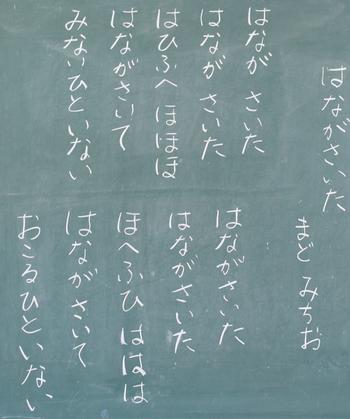 はながさいた
まど みちお
はなが さいた
はなが さいた
はひふへ ほほほ
はながさいて
みないひと いない
はながさいた
はながさいた
ほへふひ ははは
はながさいて
おこるひと いない